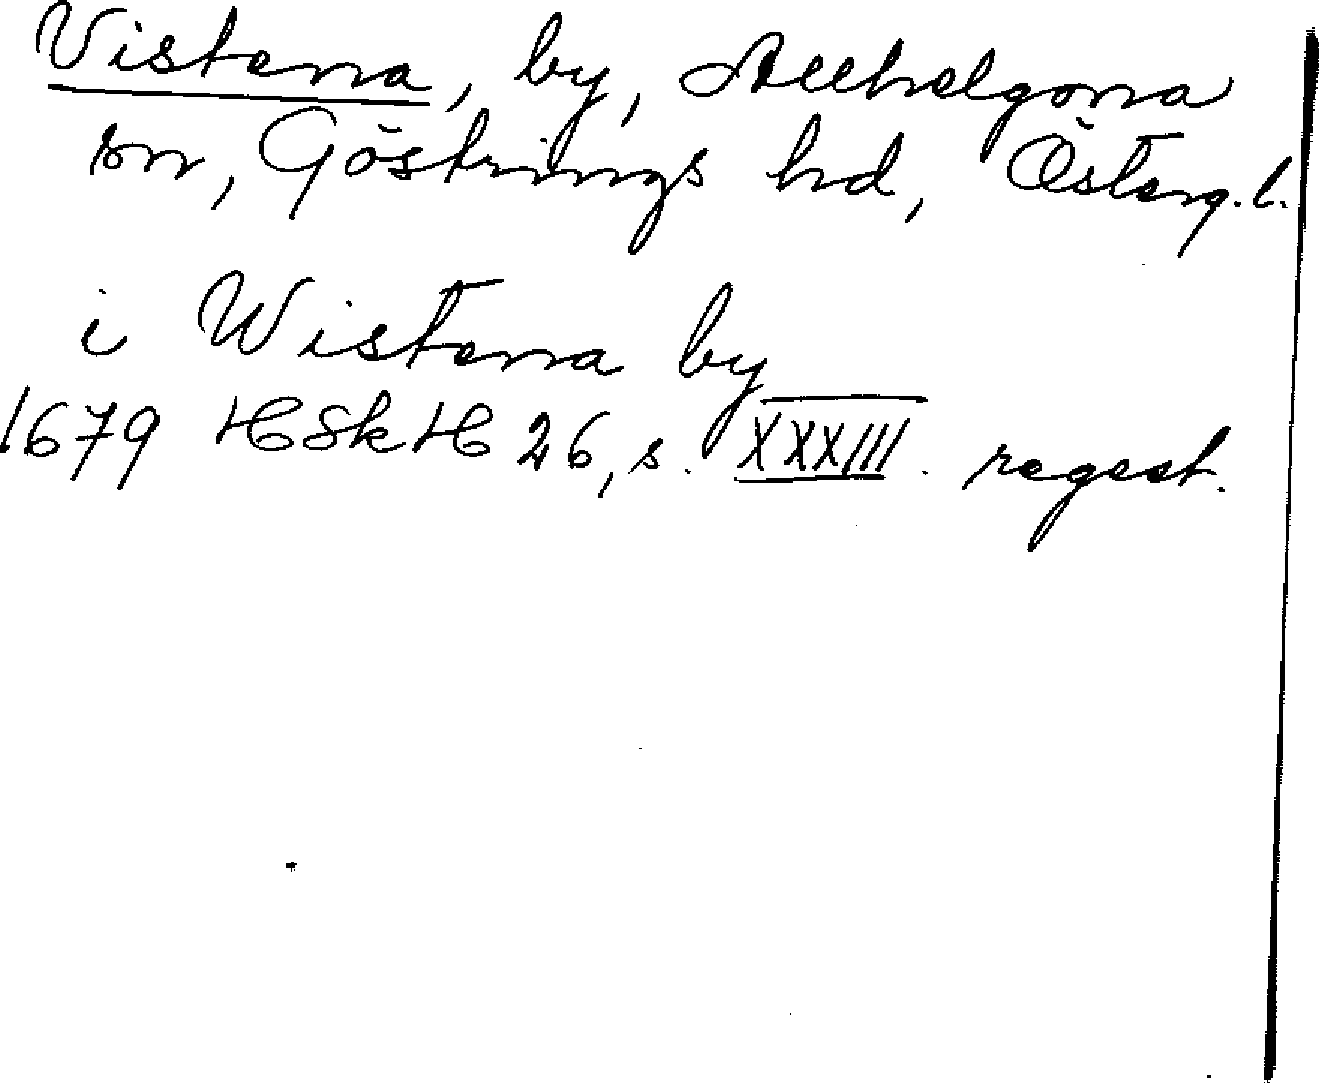 Vistena, by, Allhelgona
sn, Göstrings hd, Österg.l.
i Wistena by
1679 HSkH 26, s. XXXIII. regest.